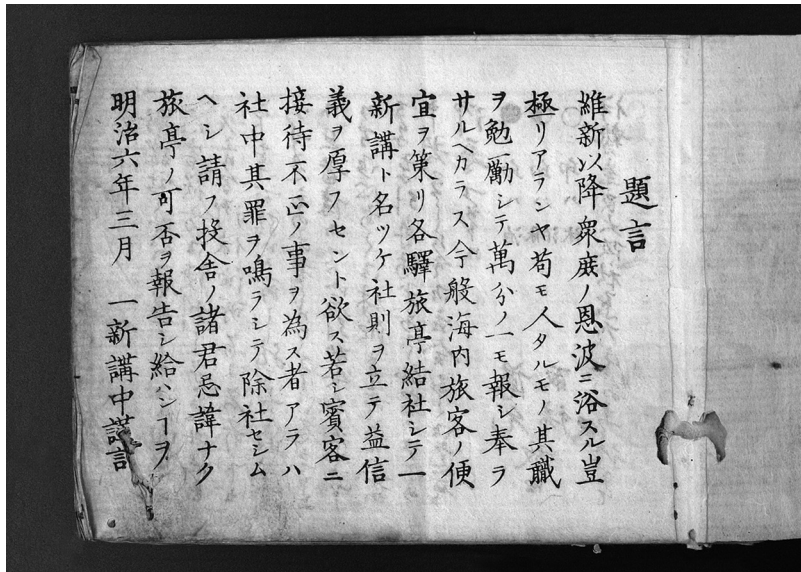 題言
維新以降衆庶ノ恩波ニ浴スル豈
極リアランヤ苟モ人タルモノ其職
ヲ勉勵シテ萬分ノ一モ報シ奉ラ
サルヘカラス今般海内旅客ノ便
宜ヲ策リ各驛旅亭結社シテ一
新講ト名ツケ社則ヲ立テ益信
義ヲ厚フセント欲ス若シ賓客ニ
接待不正ノ事ヲ為ス者アラハ
社中其罪ヲ鳴ラシテ除社セシム
ヘシ請フ投舎ノ諸君忌諱ナク
旅亭ノ可否ヲ報告シ給ハンヿヲ
明治六年三月 一新講中謹言